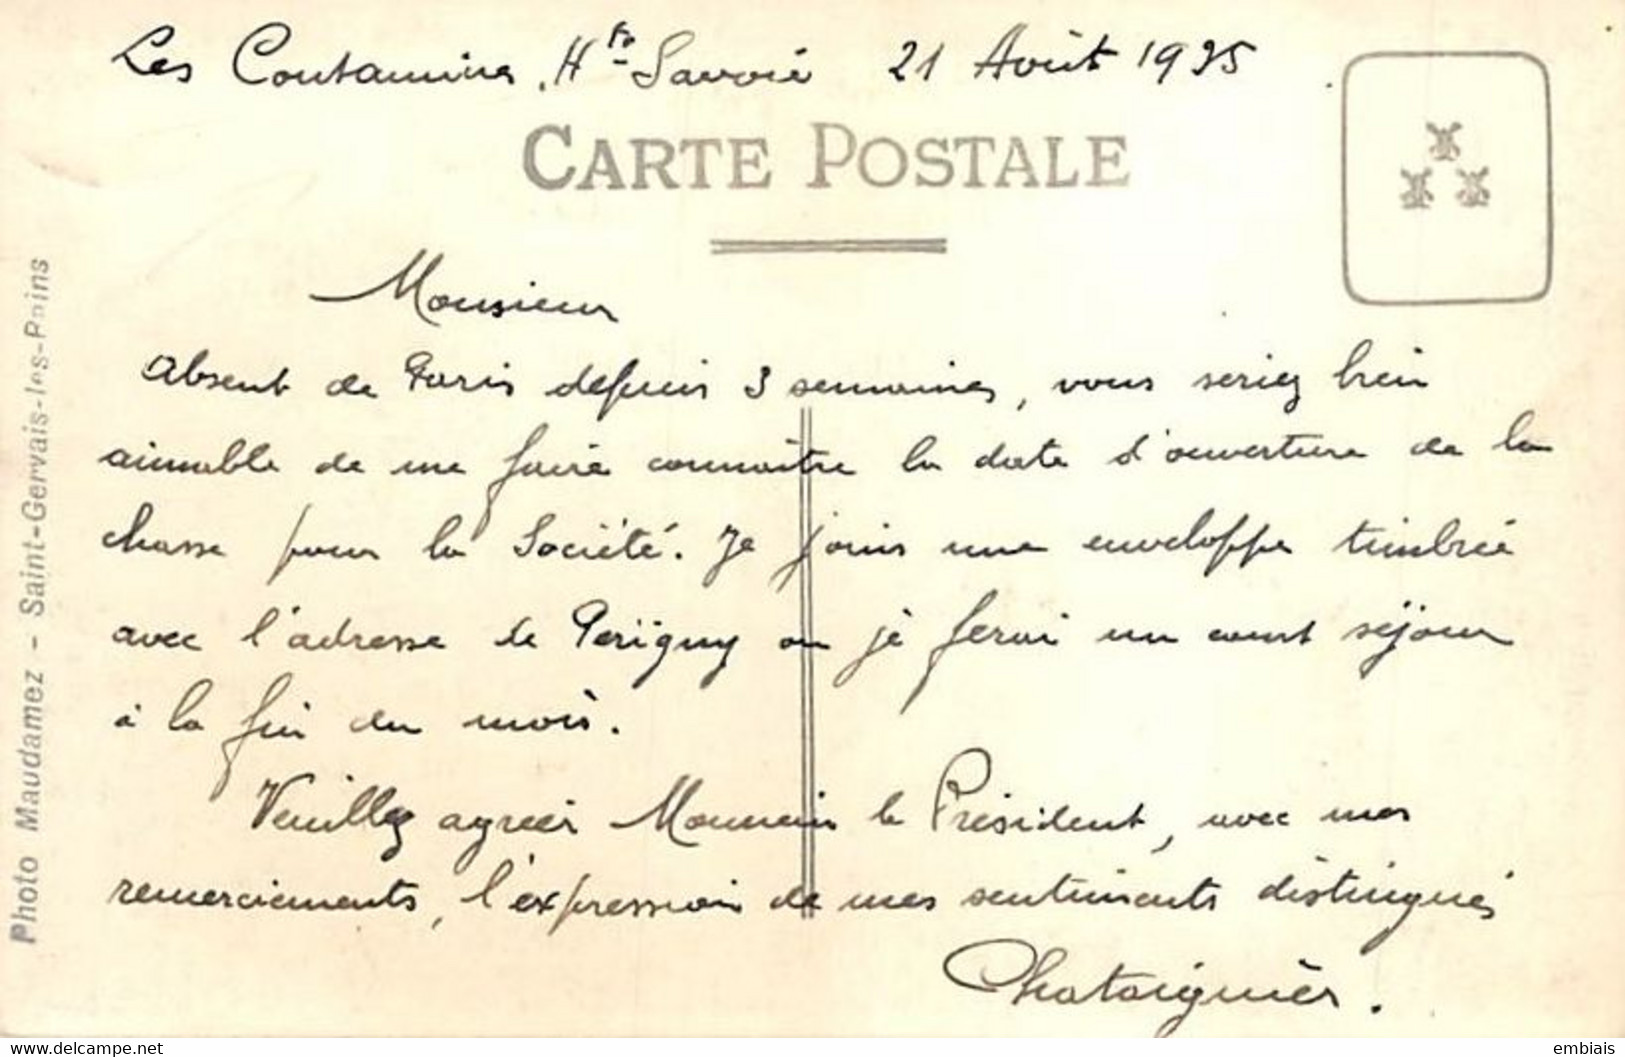 Les Contamines, Hte Savoie 21 Août 1935
CARTE POSTALE
Monsieur
Absent de Paris depuis 3 semaines, vous seriez bien
aimable de me faire connaître la date d'ouverture de la
chasse pour la Société. Je joins une enveloppe timbrée
avec l'adresse de Périgny où je ferai un court séjour
à la fin du mois.
Veuillez agréer Monsieur le Président, avec mes
remerciements, l'expression de mes sentiments distingués
Chataignier.
Photo Maudamez - Saint-Gervais-les-Bains
www.delcampe.net
embiais